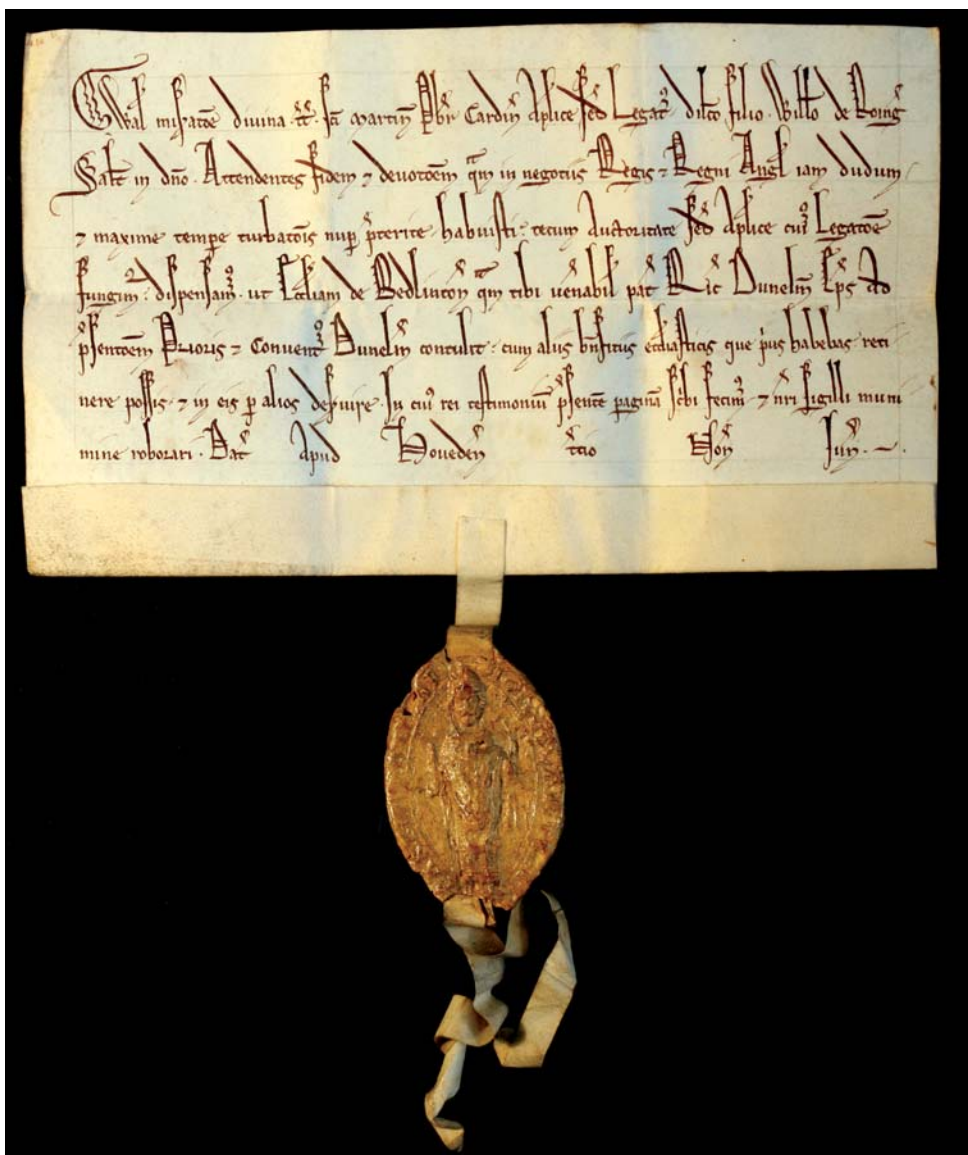 Gwal̄ misat̄oe divina . t̄t . sc̄i martin̄ Pb̄r Cardin̄ Ap̄lice Sed̄ Legat᷒ . dil̄co filio . Will̄o de Roinḡ
Sal̄t in dn̄o . Attendentes fidem ⁊ devotōem qͣm in negotiis Regis ⁊ Regni Angl̄ iam dudum
⁊ maxime temꝑe turbatōis nuꝑ p̄terite habuisti : tecum Auctoritate Sed̄ Ap̄lice cui᷒ Legatōe
fungim᷒ : dispensam᷒ . ut Eccl̄iam de Bedlinton̄ qͣm tibi venabil̄ pat̄ Ric̄ Dunelm̄ Ep̄s Ad
p̄sentōem Prioris ⁊ Convent᷒ Dunelm̄ contulit : cum aliis bn̄ficiis eccl̄iasticis que p̍us habebas . reti
nere possis . ⁊ in eis ꝑ alios des̄uire . In cui᷒ rei testimoniū p̄sentē paginā sc̍bi fecim᷒ . ⁊ nr̄i sigilli muni
mine roborari . Dat̄ Apud Hoveden̄ t̄cio Non̄ Jun̄ .